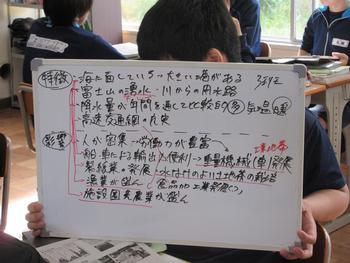 特徴
・海に面している→大きい港がある
・富士山の湧水・川からの用水路
・降水量が年間を通して比較的多 気温暖
・高速交通網の充実
影響
・人が密集→労働力が豊富
工業地帯
・船・車による輸出入便利→重量機械(車)発展
・製紙業の発展
・漁業が盛ん 食品加工業発展
・施設園芸農業が盛ん